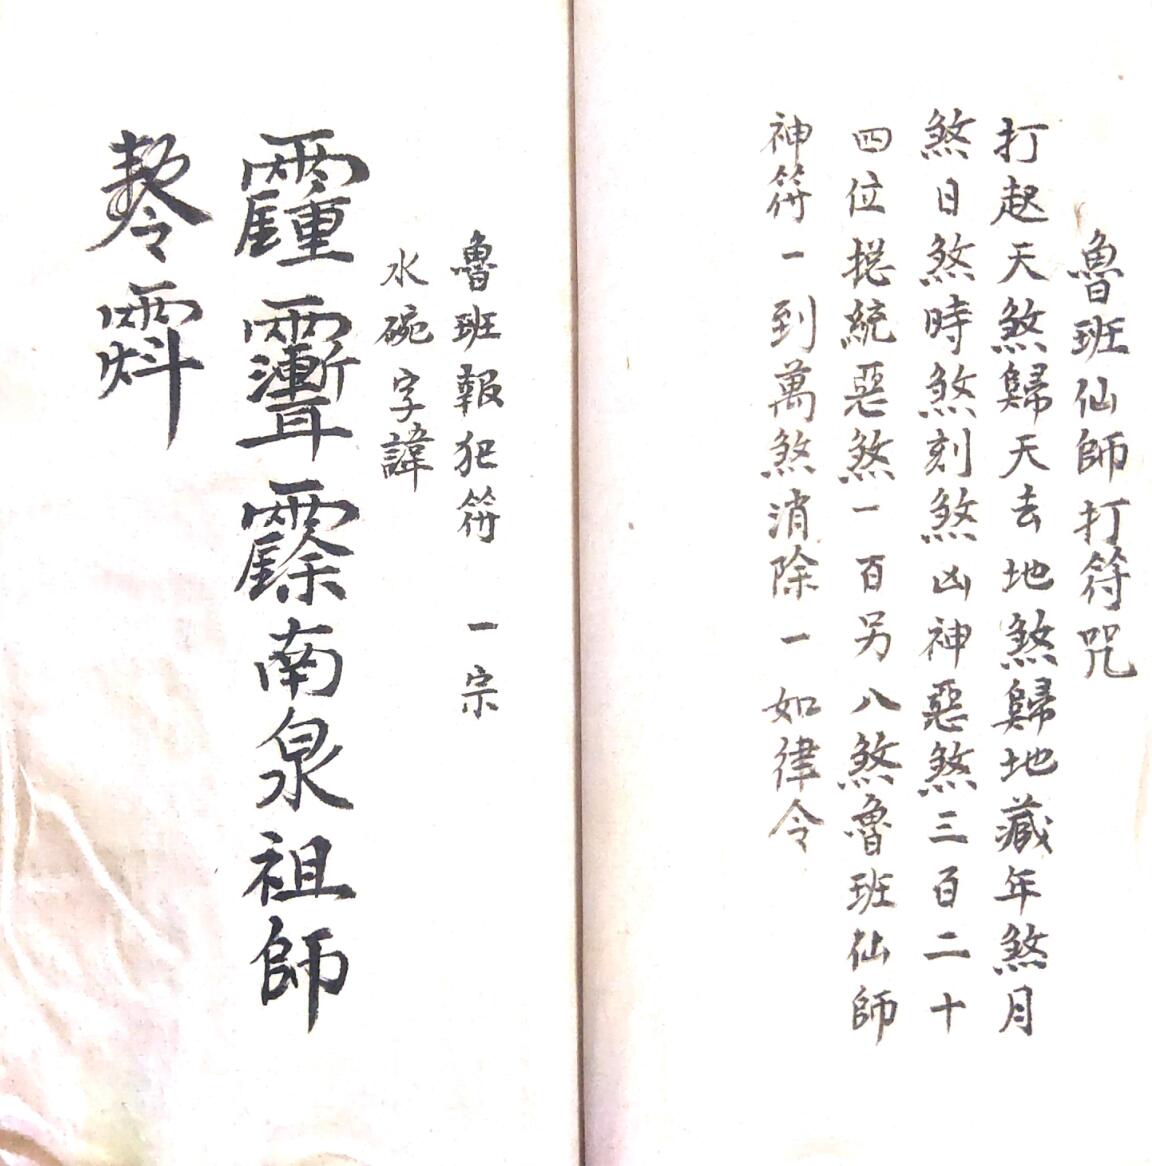 魯班仙師打符咒
打起天煞歸天去地煞歸地藏年煞月
煞日煞時煞刻煞凶神惡煞三百二十
四位摠統惡煞一百另八煞魯班仙師
神符一到萬煞消除一如律令
魯班報犯符 一宗
水碗字諱
南泉祖師